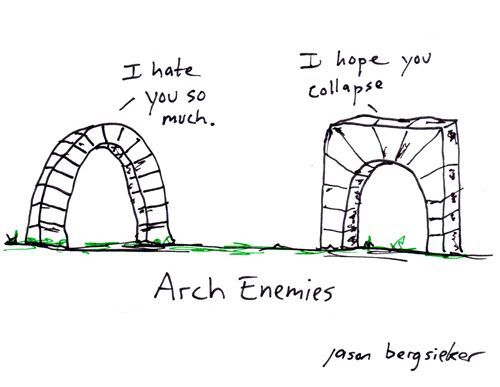 I hate
you so
much.
I hope you
collapse
Arch Enemies
jason bergsieker